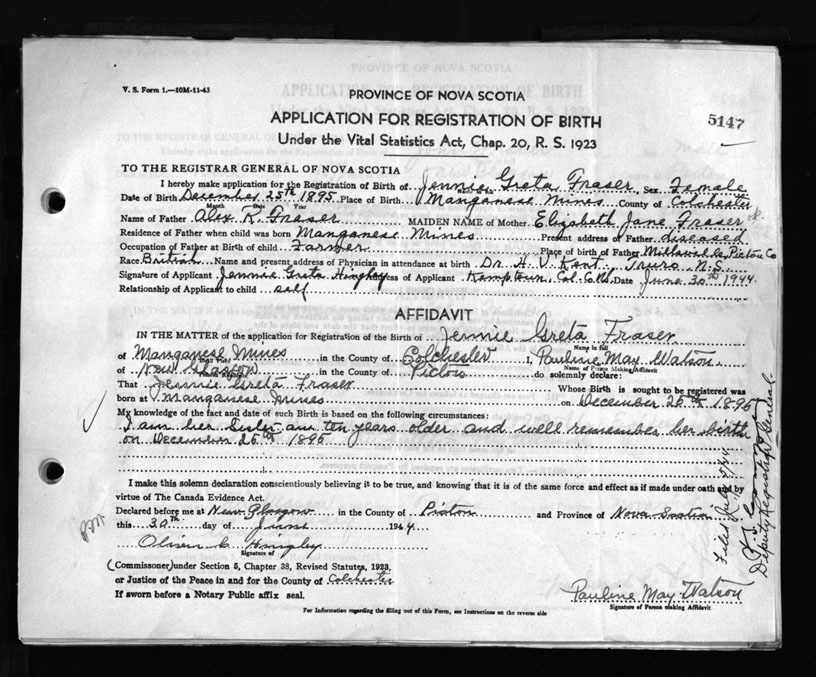 V. S. Form 1.—10M-11-43
PROVINCE OF NOVA SCOTIA
APPLICATION FOR REGISTRATION OF BIRTH
5147
Under the Vital Statistics Act, Chap. 20, R. S. 1923
TO THE REGISTRAR GENERAL OF NOVA SCOTIA
I hereby make application for the Registration of Birth of Jennie Greta Fraser, Sex Female
Date of Birth December 25th 1895 Place of Birth Manganese Mines County of Colchester
Month Date Year
Name of Father Alex R. Fraser MAIDEN NAME of Mother Elizabeth Jane Fraser
Residence of Father when child was born Manganese Mines Present address of Father diseased
Occupation of Father at Birth of child Farmer Place of Birth of Father Pictou Co
Race British Name and present address of Physician in attendance at birth Dr. H. V. Kent, Truro N.S.
Signature of Applicant Jennie Greta Hingley Address of Applicant Kemptown, Col. Co. N.S. Date June 30th 1944
Relationship of Applicant to child self
AFFIDAVIT
IN THE MATTER of the application for Registration of the Birth of Jennie Greta Fraser
Name in full
of Manganese Mines in the County of Colchester I, Pauline May Watson
Name of Person Making Affidavit
of New Glasgow in the County of Pictou do solemnly declare:
That Jennie Greta Fraser Whose Birth is sought to be registered was
born at Manganese Mines on December 25th 1895
My knowledge of the fact and date of such Birth is based on the following circumstances:
I am her Sister am ten years older and well remember her birth
on December 25th 1895
I make this solemn declaration conscientiously believing it to be true, and knowing that it is of the same force and effect as if made under oath and by
virtue of The Canada Evidence Act.
Declared before me at New Glasgow in the County of Pictou and Province of Nova Scotia
this 30th day of June 1944
Oliver C Hingley
Signature of
(Commissoner) under Section 5, Chapter 38, Revised Statutes, 1923,
or Justice of the Peace in and for the County of Colchester
If sworn before a Notary Public affix seal.
Pauline May Watson
Signature of Person making Affidavit
For Information regarding the filling out of this Form, see Instructions on the reverse side
Filed July
Deputy Registrar General